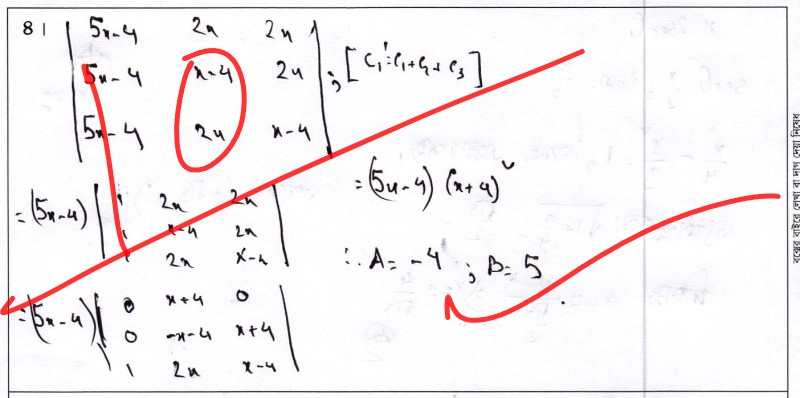 8।
| 5x-4 2x 2x |
| 5x-4 x-4 2x | ; [C₁' = C₁+C₂+C₃]
| 5x-4 2x x-4 |
= (5x-4) | 1 2x 2x |
| 1 x-4 2x |
| 1 2x x-4 |
= (5x-4) | 0 x+4 0 |
| 0 -x-4 x+4 |
| 1 2x x-4 |
= (5x-4) (x+4)²
∴ A = -4 ; B = 5
বক্সের বাইরে লেখা বা দাগ দেয়া নিষেধ